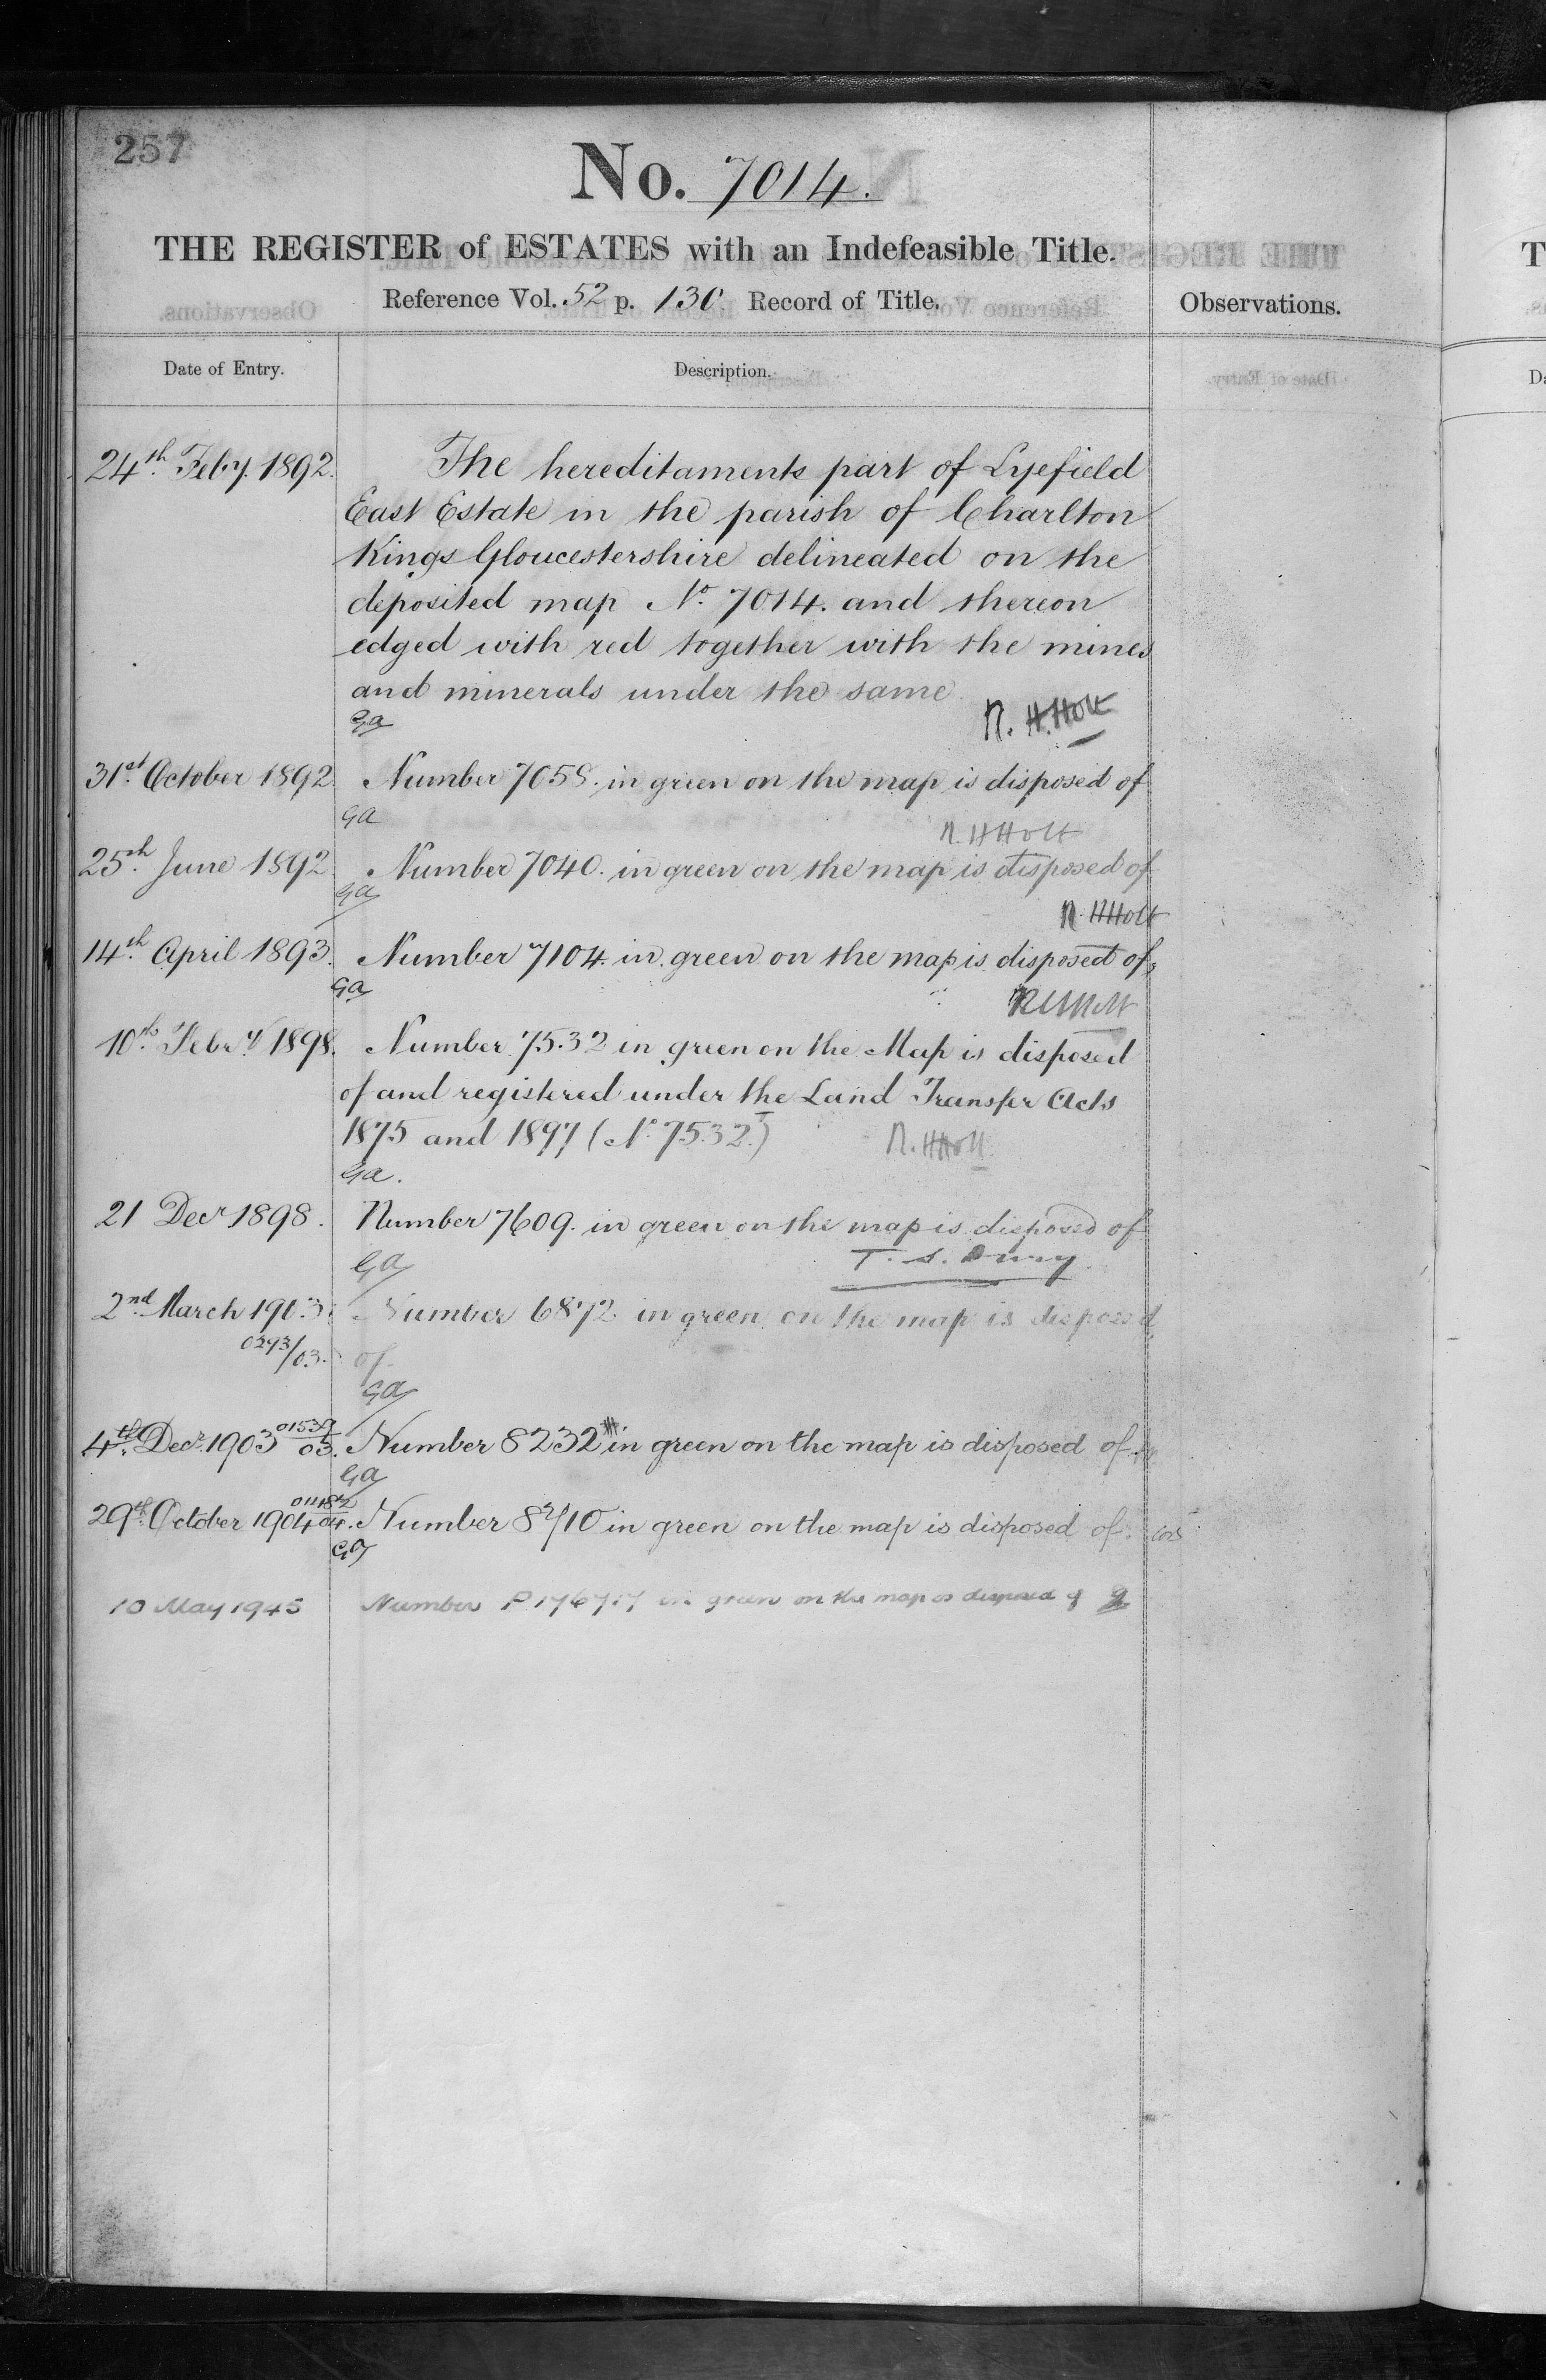 257
No. 7014.
THE REGISTER of ESTATES with an Indefeasible Title.
Reference Vol. 52 p. 130. Record of Title.
Observations.
Date of Entry.
Description.
24th Feby. 1892.
The hereditaments part of Lyefield
East Estate in the parish of Charlton
Kings Gloucestershire delineated on the
deposited map No. 7014. and thereon
edged with red together with the mines
and minerals under the same
Ga
R. H. Holt
31st October 1892. Number 7058. in green on the map is disposed of
Ga
R. H Holt
25th June 1892 Number 7040. in green on the map is disposed of
Ga
R. H Holt
14th April 1893. Number 7104. in green on the map is disposed of
Ga
R H Holt
10th Febry 1898. Number 7532 in green on the Map is disposed
of and registered under the Land Transfer Acts
1875 and 1897 (No. 7532.)
R. H Holt
Ga.
21 Decr 1898. Number 7609. in green on the map is disposed of
Ga
T. S.
2nd March 1903. Number 6872 in green on the map is disposed
0293/03. of
Ga
4th Decr. 1903 Number 8232 in green on the map is disposed of
Ga
29th October 1904 Number 8710 in green on the map is disposed of.
Ga
10 May 1945 Number P176717 in green on the map is disposed of